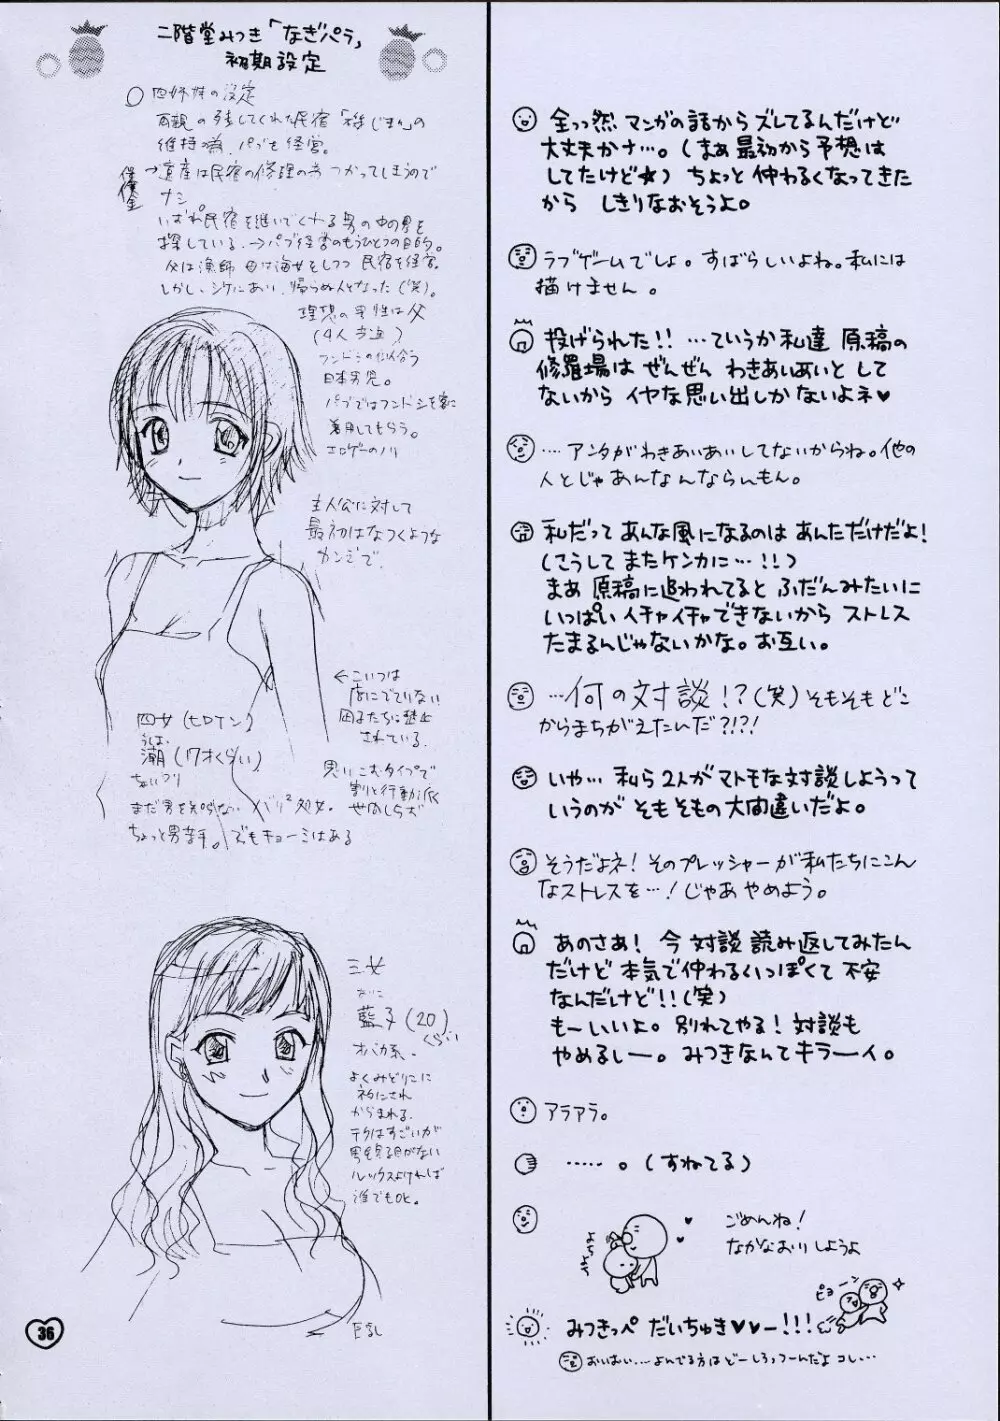 二階堂みつき「なぎパラ」
初期設定
四姉妹の設定
両親の残してくれた民宿「
維持の為、パブも経営。
借金
→遺産は民宿の修理の為つかってしまうので
ナシ。
いずれ民宿を継いでくれる男の中の男を
探している。→パブ経営のもうひとつの目的。
父は漁師 母は海女をしつつ 民宿を経営。
しかし、シケにあい、帰らぬ人となった(笑)。
理想の男性は父
(4人共通)
フンドシの似合う
日本男児。
パブではフンドシを客に
着用してもらう。
エロゲーのノリ
主人公に対して
最初はなつくような
カンジで。
←こいつは
店にでていない
姉たちに禁止
されている。
四女(ヒロイン)
うしお
潮(17才くらい)
思いこむタイプで
割と行動派
世間しらず
まだ男を知らない バリ²処女。
ちょっと男苦手。でもキョーミはある
三女
藍子(20)くらい
オバカ系。
よくみどりこに
ネタにされ
からまれる。
テクはすごいが
男を見る目がない
ルックスよければ
誰でもOK。
巨乳
36
全っっ然 マンガの話から ズレてるんだけど
大丈夫かナ…。(まぁ最初から予想は
してたけど☆) ちょっと仲わるくなってきた
から しきりなおそうよ。
ラブゲームでしょ。すばらしいよね。私には
描けません。
投げられた!! …ていうか私達 原稿の
修羅場は ぜんぜん わきあいあいと して
ないから イヤな思い出しかないよネ♥
…. アンタがわきあいあいしてないからね。他の
人とじゃ あんなんならんもん。
私だって あんな風になるのは あんただけだよ!
(こうして またケンカに…!!)
まぁ 原稿に追われてると ふだんみたいに
いっぱい イチャイチャできないから ストレス
たまるんじゃないかな。お互い。
…何の対談!?(笑)そもそも どこ
からまちがえたんだ?!?!
いや… 私ら2人がマトモな対談しようって
いうのが そもそもの大間違いだよ。
そうだよネ! そのプレッシャーが私たちにこん
なストレスを…! じゃあ やめよう。
あのさあ! 今 対談 読み返してみたん
だけど 本気で仲わるくいっぽくて 不安
なんだけど!!(笑)
もーいいよ。別れてやる! 対談も
やめるしー。みつきなんてキラーイ。
アラアラ。
……。(すねてる)
よしよし
ごめんね!
なかなおりしようよ
ピョーン
みつきっぺ だいちゅき♥♥ー!!!
おいおい…よんでる方はどーしろっつーんだよ コレ…